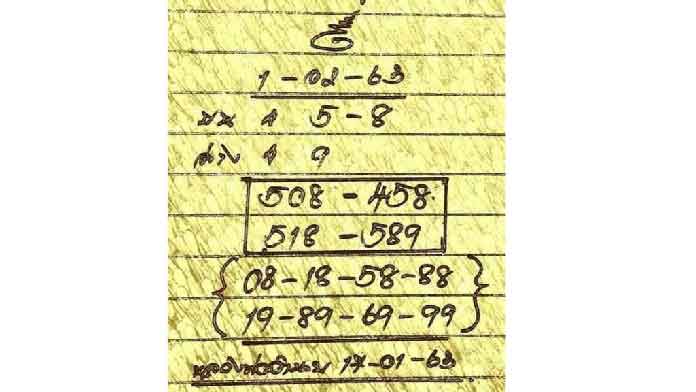 1-02-63
บน 4 5-8
ล่าง 4 9
508-458
518-589
08-18-58-88
19-89-69-99
17-01-63